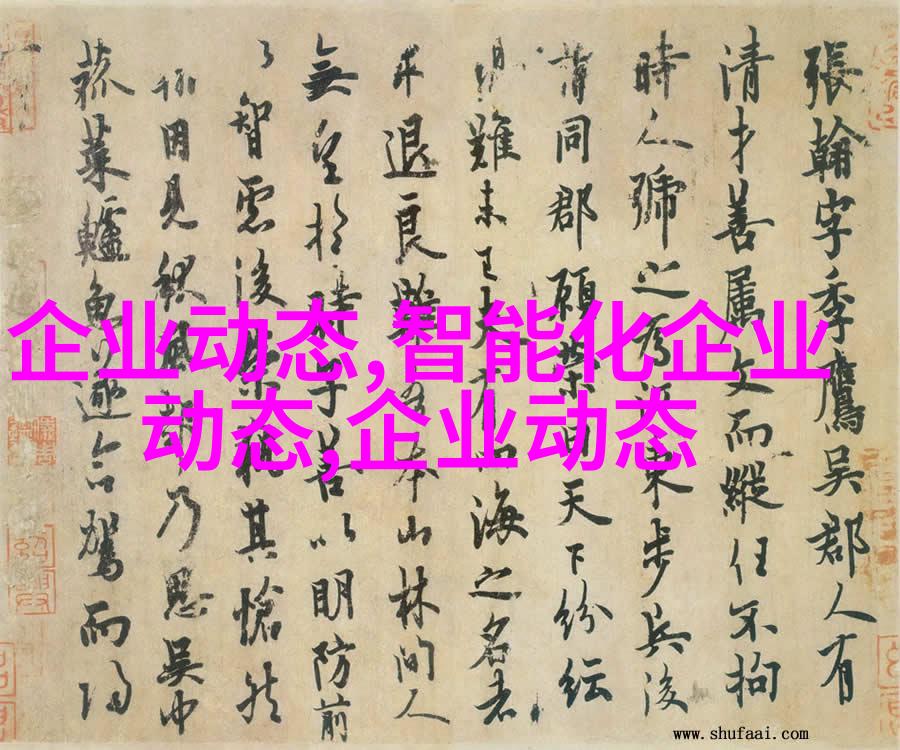 張翰字季鷹吳郡人有
清才善屬文而縱任不拘
時人號之為江東步兵後
謂同郡顧榮曰天下紛紜
難未已夫有四海之名者
求退良難吾本山林間人
無望於時子善以明防前
以智慮後榮執其愴然
翰因見秋風起乃思吳中
菰菜鱸魚遂命駕而歸
企业动态,智能化企业
动态,企业动态
www.shufaai.com